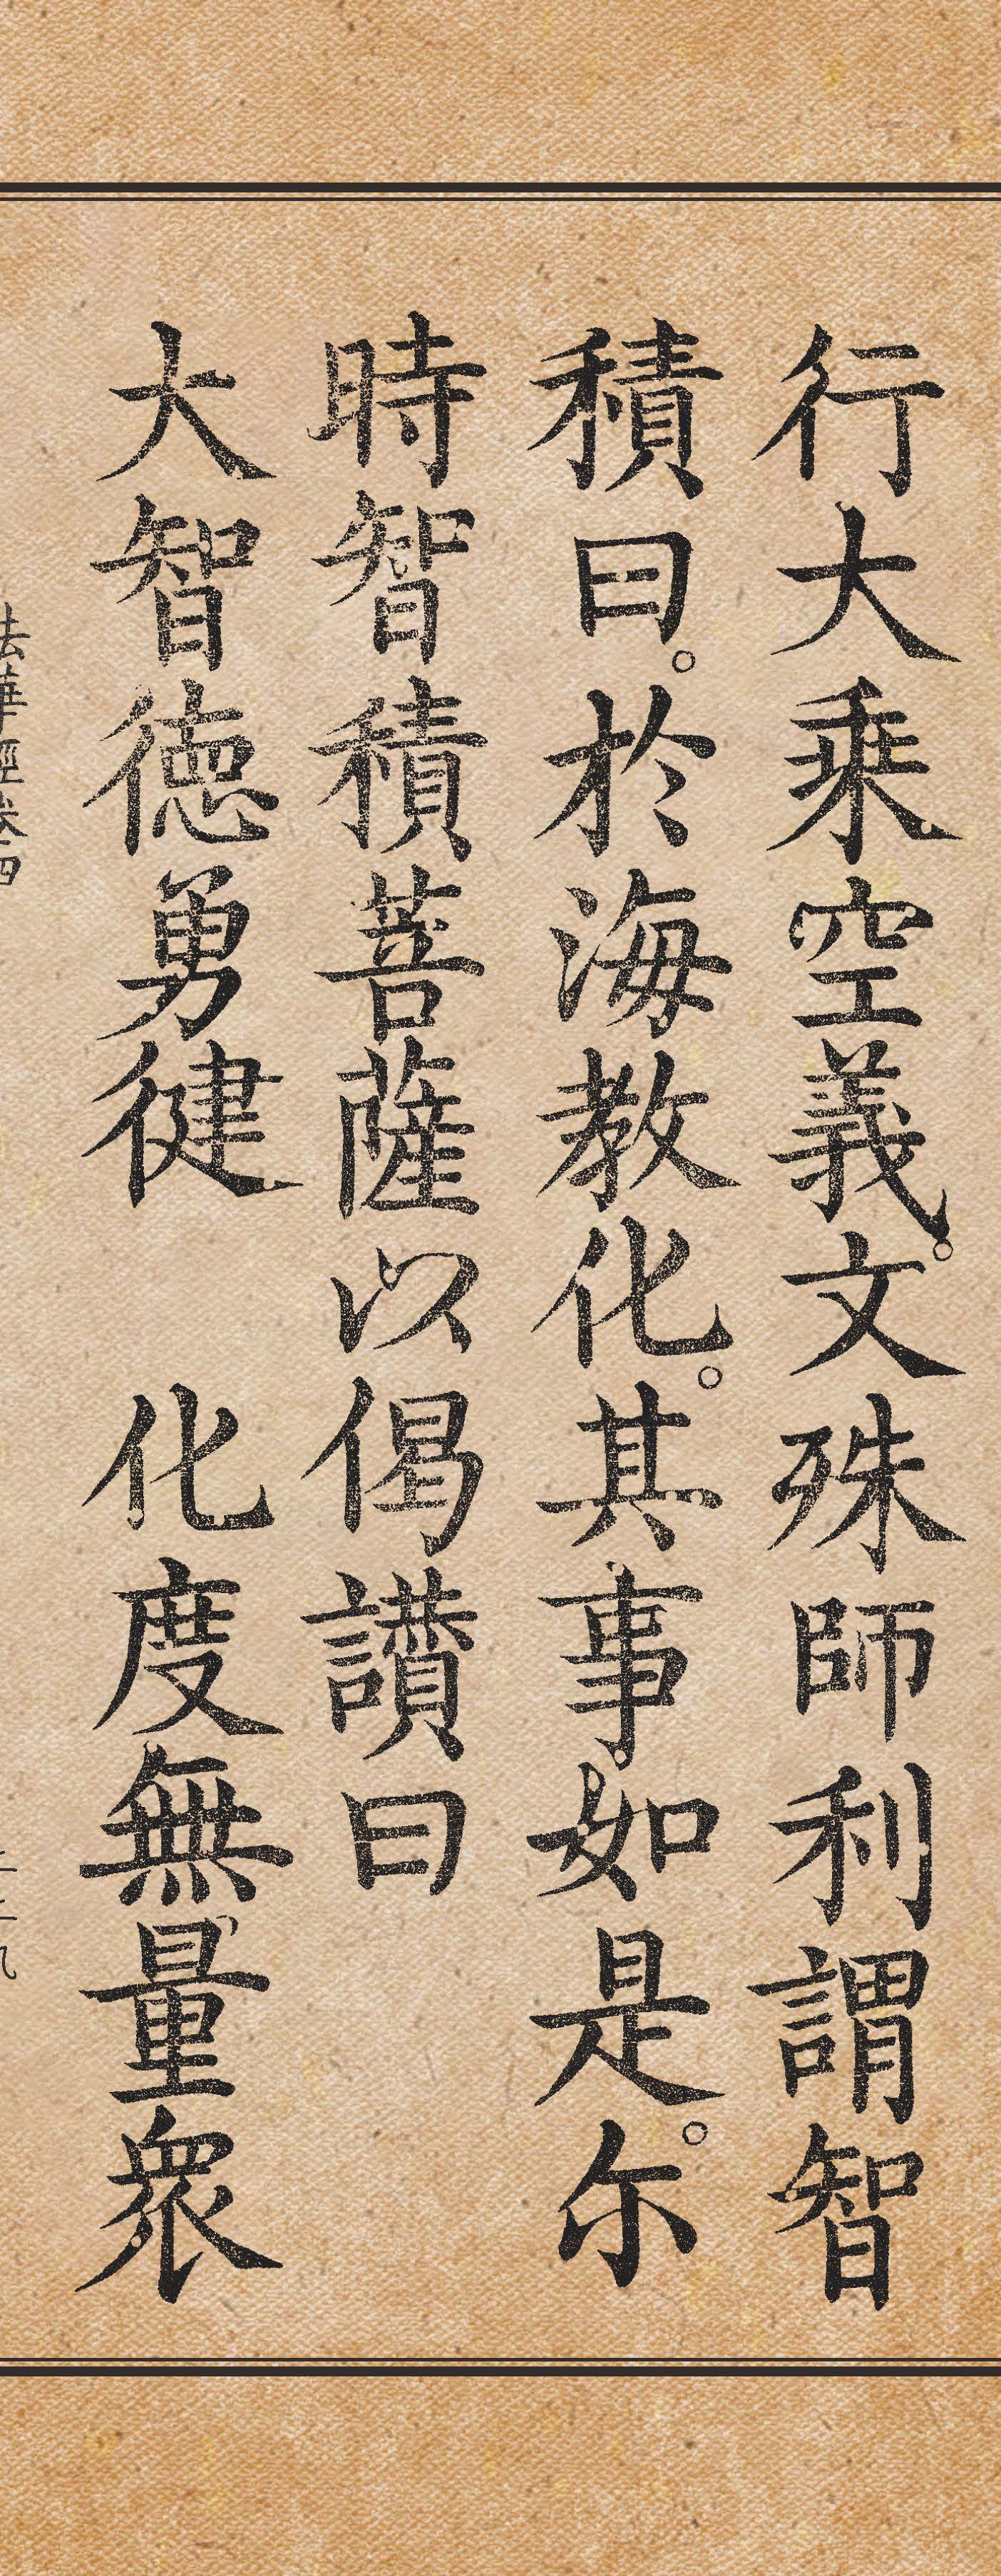 行大乘空義。文殊師利謂智
積曰。於海教化。其事如是。尒
時智積菩薩以偈讃曰
大智徳勇健　化度無量衆
法華經卷四